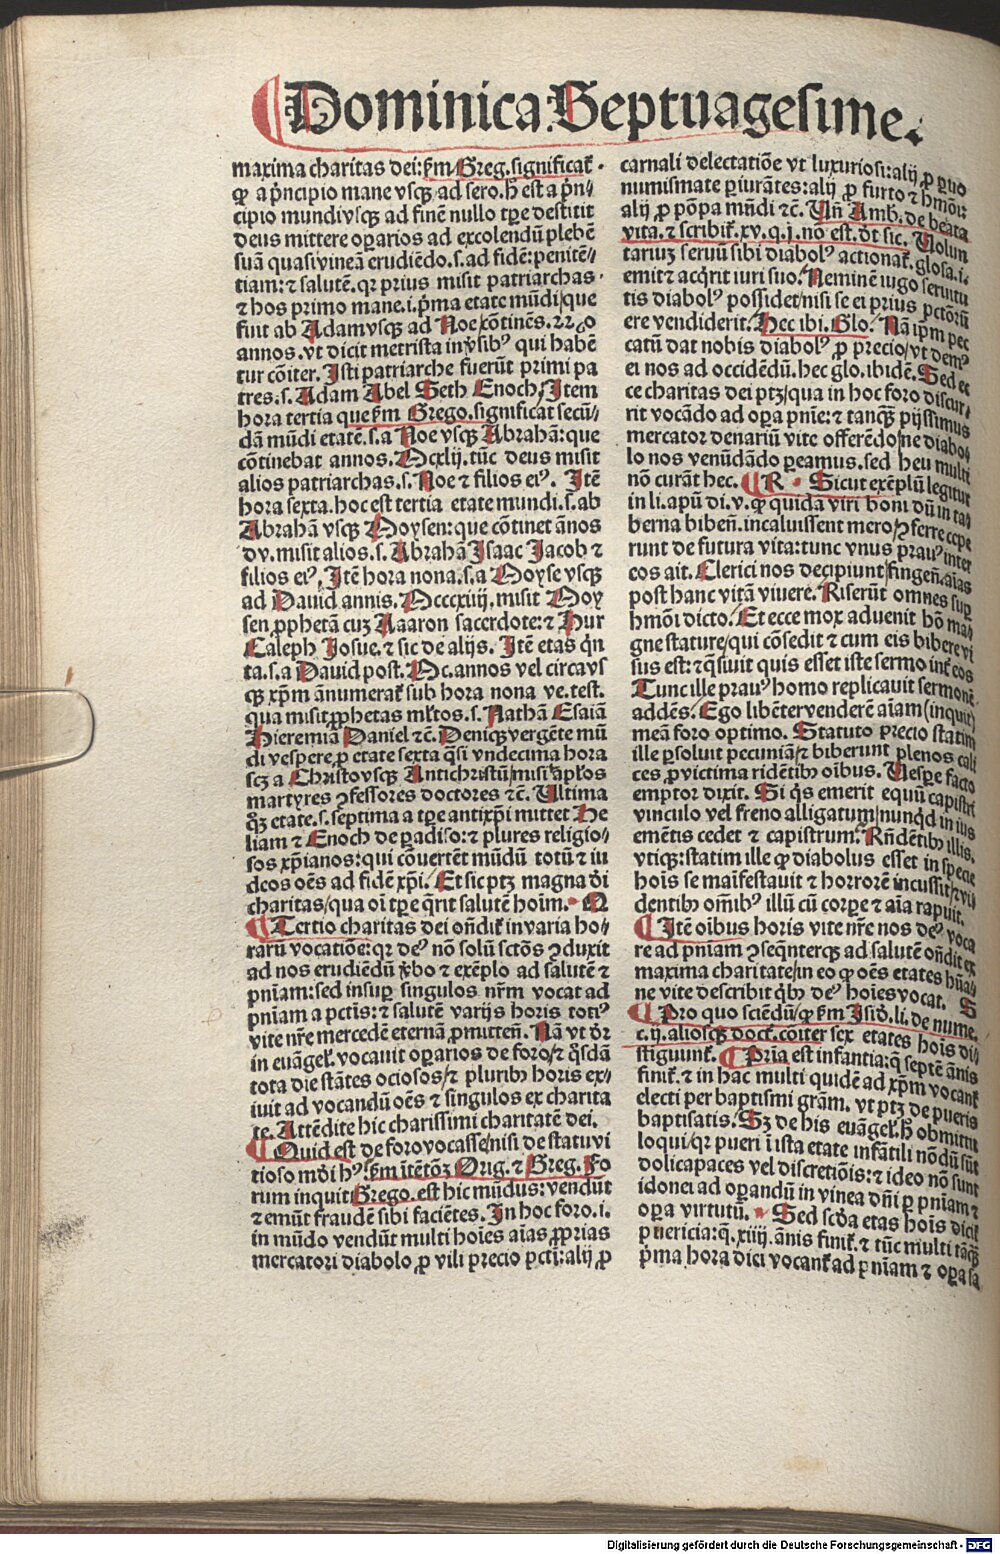 Dominica Septuagesime.
maxima charitas dei: s̄m Greg. significat̄
ꝙ a p̄ncipio mane vsqꝫ ad sero. h̄ est a p̄n/
cipio mundi vsqꝫ ad finē nullo tꝑe destitit
deus mittere oꝑarios ad excolendū plebē
suā quasi vineā erudiēdo. s. ad fidē: penitē/
tiam: ⁊ salutē. qꝛ prius misit patriarchas
⁊ hos primo mane. i. p̄ma etate mūdi que
fuit ab Adam vsqꝫ ad Noe/cōtinēs. 2260
annos. vt dicit metrista in v̄sibꝰ qui habē
tur cōiter. Isti patriarche fuerūt primi pa
tres. s. Adam Abel Seth Enoch/ Item
hora tertia que s̄m Grego. significat secū/
dā mūdi etatē. s. a Noe vsqꝫ Abrahā: que
cōtinebat annos. Mcxlij. tūc deus misit
alios patriarchas. s. Noe ⁊ filios eiꝰ. Itē
hora sexta. hoc est tertia etate mundi. s. ab
Abrahā vsqꝫ Moysen: que cōtinet ānos
dv. misit alios. s. Abrahā Isaac Jacob ⁊
filios eiꝰ. Itē hora nona. s. a Moyse vsqꝫ
ad Dauid annis. Mcccxiiij. misit Moy
sen ꝓphetā cuꝫ Aaaron sacerdote: ⁊ Hur
Caleph Josue. ⁊ sic de alijs. Itē etas q̄n
ta. s. a Dauid post. Mc. annos vel circa vs
qꝫ xp̄m ānumerat̄ sub hora nona ve. test.
qua misit ꝓphetas ml̄tos. s. Nathā Esaiā
Hieremiā Daniel ⁊c̄. Deniqꝫ vergēte mū
di vespere. ꝓ etate sexta q̄si vndecima hora
scꝫ a Christo vsqꝫ Antichristū/misit apl̄os
martyres ꝯfessores doctores ⁊c̄. Ultima
etate. s. septima a tꝑe antixp̄i mittet He
liam ⁊ Enoch de ꝑadiso: ⁊ plures religio/
sos xp̄ianos: qui cōuertēt mūdū totū ⁊ iu
deos oēs ad fidē xp̄i. Et sic ptꝫ magna d̄i
charitas/qua oī tꝑe q̄rit salutē hoīm.
Tertio charitas dei on̄dit̄ in varia ho/
rarū vocatiōe: qꝛ deꝰ nō solū sc̄tōs ꝯduxit
ad nos erudiēdū v̄bo ⁊ exēplo ad salutē ⁊
pn̄iam: sed insuꝑ singulos nr̄m vocat ad
pn̄iam a pctīs: ⁊ salutē varijs horis totiꝰ
vite nr̄e mercedē eternā ꝓmitten̄. Nā vt d̄r
in euāgel̄. vocauit oꝑarios de foro/⁊ q̄sdā
tota die stātes ociosos/⁊ pluribꝫ horis ex/
iuit ad vocandū oēs ⁊ singulos ex charita
te. Attēdite hic charissimi charitatē dei.
Quid est de foro vocasse/nisi de statu vi
tioso mūdi hꝰ. s̄m Orig. ⁊ Greg. Fo
rum inquit Grego. est hic mūdus: vendūt
⁊ emūt fraudē sibi faciētes. In hoc foro. i.
in mūdo vendūt multi hoīes aīas ꝓprias
mercatori diabolo ꝓ vili precio pctī: alij ꝓ
carnali delectatiōe vt luxuriosi: alij ꝓ
numismate ꝑiurātes: alij ꝓ furto ⁊ hmōi:
alij ꝓ pōpa mūdi ⁊c̄. Un̄ Amb. de beata
vita. ⁊ scribit̄. xv. q. j. nō est. d̄t sic. Uolun
tariuꝫ seruū sibi diabolꝰ actionat̄. glosa. i.
emit ⁊ acq̄rit iuri suo. Neminē iugo seruitu
tis diabolꝰ possidet/nisi se ei prius pctōrū
ere vendiderit. Hec ibi. Glo. Nā ip̄m pec
catū dat nobis diabolꝰ ꝓ precio/vt demꝰ
ei nos ad occidēdū. hec glo. ibidē. Sed ec
ce charitas dei ptꝫ/qua in hoc foro discur/
rit vocādo ad oꝑa pn̄ie: ⁊ tanqꝫ pijssimus
mercator denariū vite offerēdo/ne diabo
lo nos venūdādo ꝑeamus. sed heu multi
nō curāt hec. R. Sicut exēplū legitur
in li. apū di. v. ꝙ quidā viri boni dū in ta
berna biben̄. incaluissent mero/ꝯferre cepe
runt de futura vita: tunc vnus prauꝰ inter
eos ait. Clerici nos decipiunt/fingen̄. aīas
post hanc vitā viuere. Riserūt omnes suꝑ
hmōi dicto. Et ecce mox aduenit hō ma/
gne stature/qui cōsedit ⁊ cum eis bibere vi
sus est: ⁊ q̄siuit quis esset iste sermo int̄ eos
Tunc ille prauꝰ homo replicauit sermonē
addēs. Ego libēter venderē aīam (inquit)
meā foro optimo. Statuto precio statim
ille ꝑsoluit pecuniā/⁊ biberunt plenos cali
ces ꝓ victima ridētibꝫ oībus. Uesꝑe facto
emptor dixit. Si q̄s emerit equū capistri
vinculo vel freno alligatum/nunqd in ius
emētis cedet ⁊ capistrum. Rn̄dētibꝫ illis.
vtiqꝫ: statim ille ꝙ diabolus esset in specie
hoīs se maīfestauit ⁊ horrorē incussit/⁊ vi
dentibꝫ om̄ibꝰ illū cū corꝑe ⁊ aīa rapuit.
Itē oībus horis vite nr̄e nos deꝰ voca
re ad pn̄iam ꝯseq̄nterqꝫ ad salutē on̄dit ex
maxima charitate/in eo ꝙ oēs etates hūa/
ne vite describit q̄bꝫ deꝰ hoīes vocat. S
Pro quo sciendū/ꝙ s̄m Isid. li. de nume.
c. ij. aliosqꝫ doct̄. cōiter sex etates hoīs di/
stiguunt̄. Pria est infantia: q̄ septē ānis
finit̄. ⁊ in hac multi quidē ad xp̄m vocant̄
electi per baptismi grām. vt ptꝫ de pueris
baptisatis. Sꝫ de his euāgel̄. h̄ obmittit
loqui/qꝛ pueri ī ista etate infātili nōdū sūt
doli capaces vel discretiōis: ⁊ ideo nō sunt
idonei ad oꝑandū in vinea dn̄i ꝑ pn̄iam ⁊
oꝑa virtutū. Sed scd̄a etas hoīs dicit̄
puericia: q̄. xiiij. ānis finit̄. ⁊ tūc multi tāqꝫ
p̄ma hora diei vocant̄ ad pn̄iam ⁊ oꝑa sa
Digitalisierung gefördert durch die Deutsche Forschungsgemeinschaft - DFG